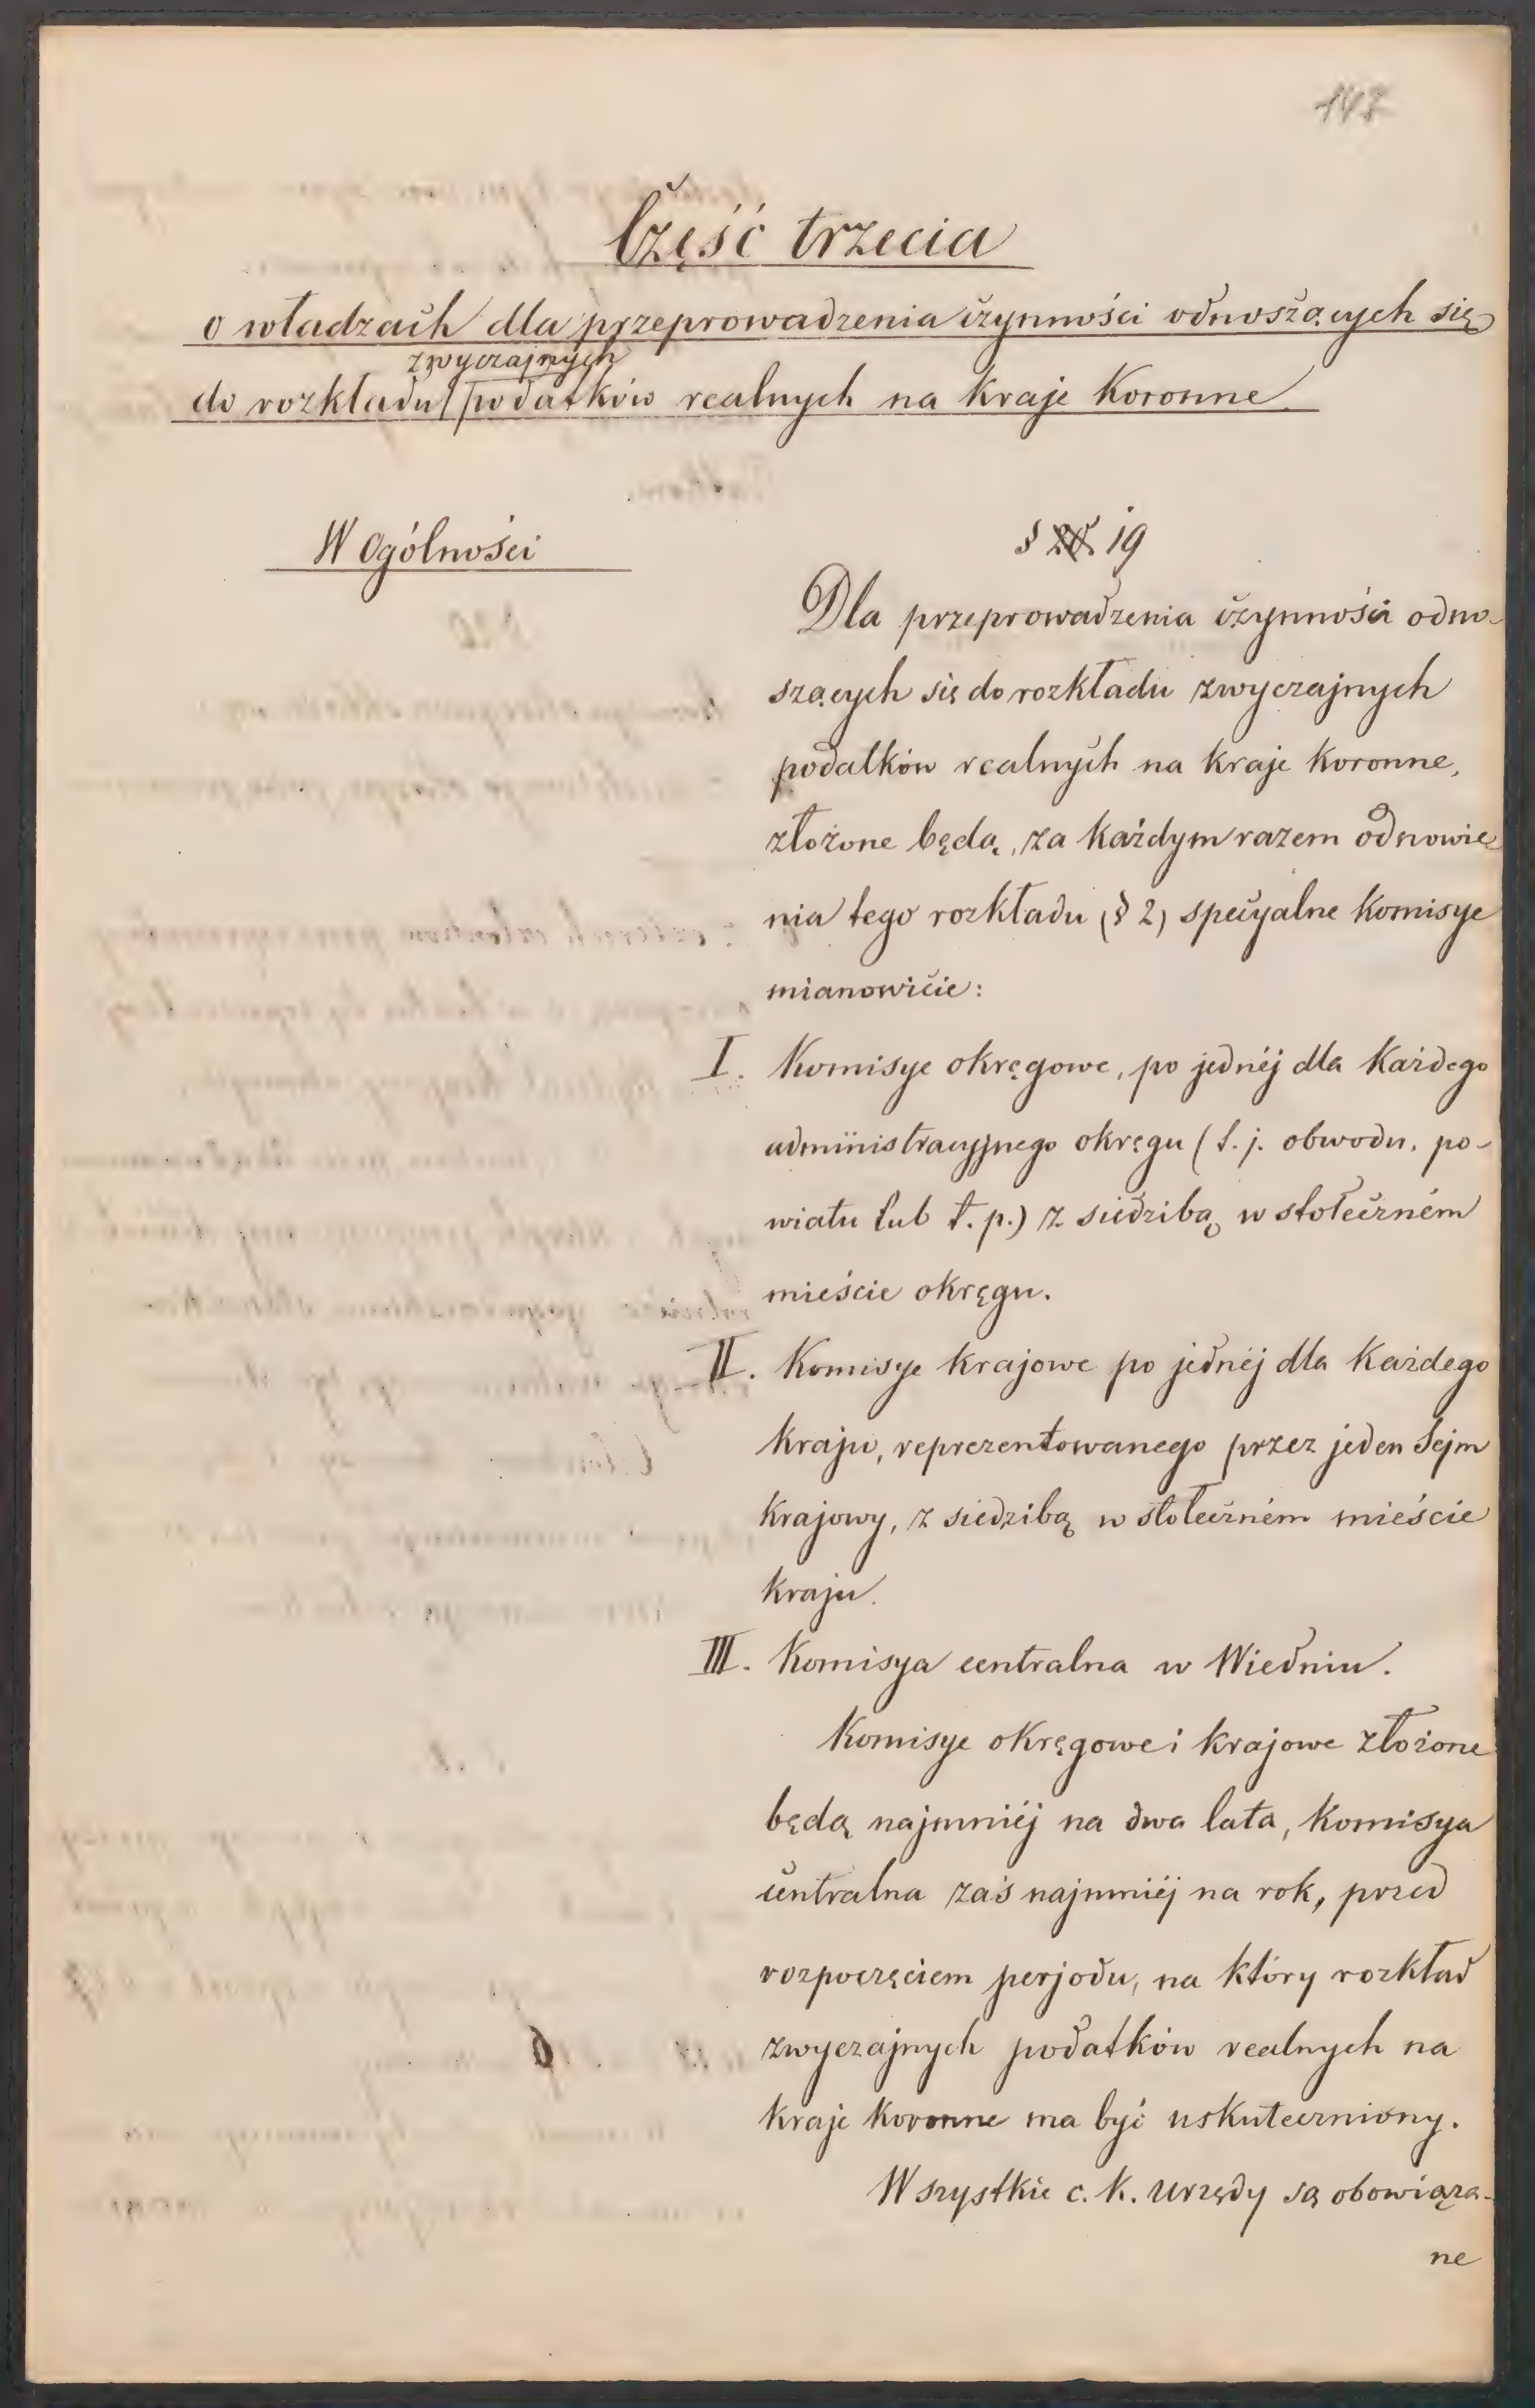 147
Część trzecia
o władzach dla przeprowadzenia czynności odnoszących się
zwyczajnych
do rozkładu podatków realnych na kraje koronne
W Ogólności
§ 20 19
Dla przeprowadzenia czynności odno-
szących się do rozkładu zwyczajnych
podatków realnych na kraje koronne,
złożone będą, za każdym razem odnowie
nia tego rozkładu (§ 2) specyalne komisye
mianowicie:
I. Komisye okręgowe, po jednéj dla każdego
administracyjnego okręgu (t. j. obwodu, po-
wiatu lub t. p.) z siedzibą w stołeczném
mieście okręgu.
II. Komisye krajowe po jednéj dla każdego
kraju, reprezentowanego przez jeden Sejm
krajowy, z siedzibą w stołeczném mieście
kraju.
III. Komisya centralna w Wiedniu.
Komisye okręgowe i krajowe złożone
będą najmniéj na dwa lata, komisya
centralna zaś najmniéj na rok, przed
rozpoczęciem perjodu, na który rozkład
zwyczajnych podatków realnych na
kraje koronne ma być uskuteczniony.
Wszystkie c. k. urzędy są obowiąza-
ne